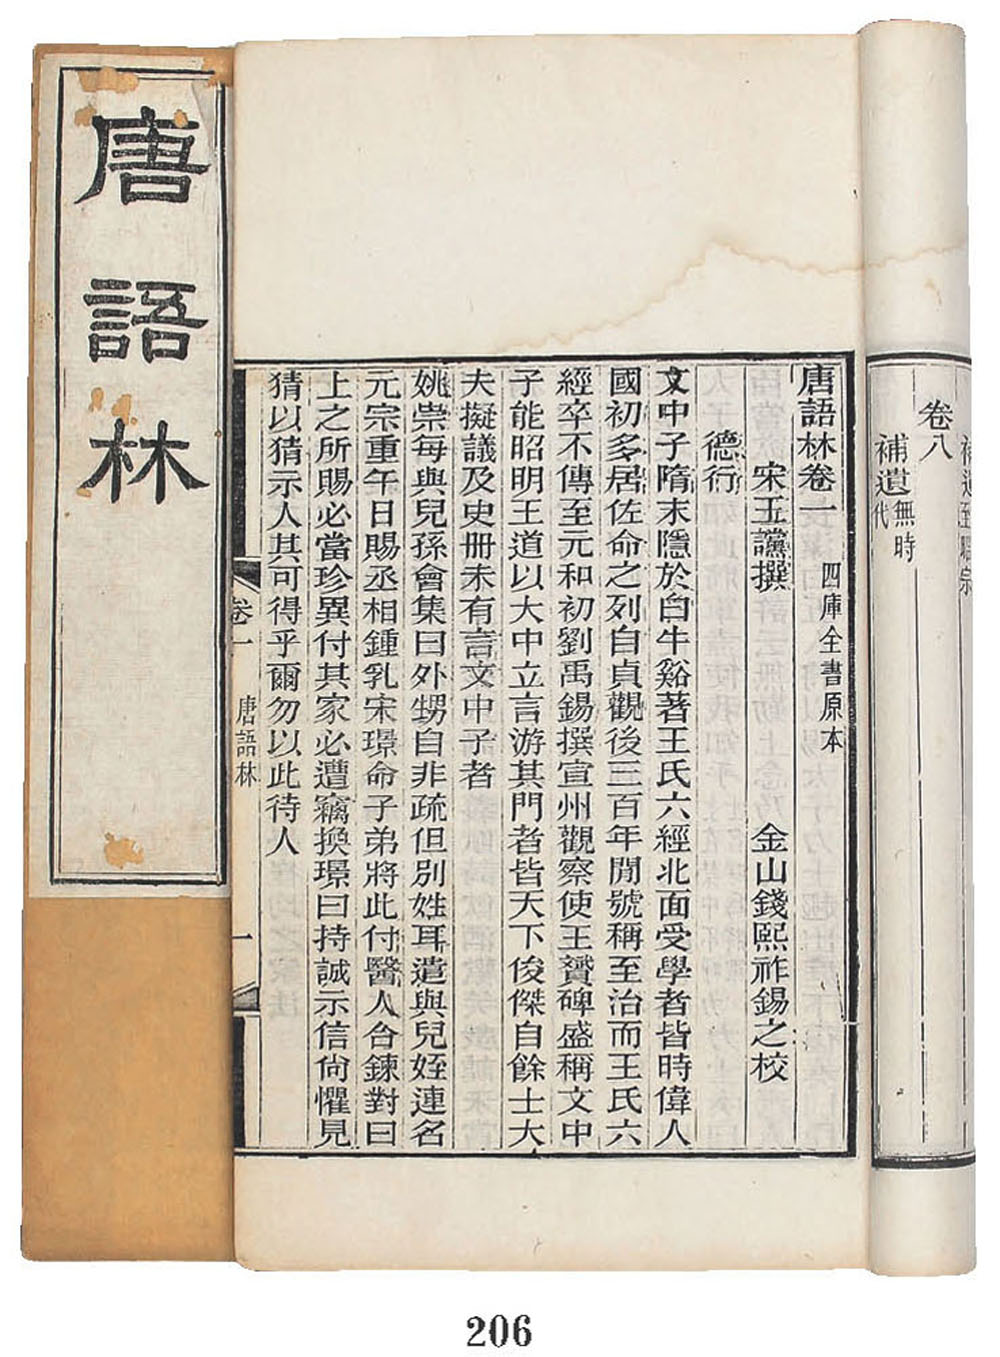 唐語林
補遺至昭宗
卷八
補遺無時代
唐語林卷一
四庫全書原本
宋王讜撰
金山錢熙祚錫之校
德行
文中子隋末隱於白牛谿著王氏六經北面受學者皆時偉人
國初多居佐命之列自貞觀後三百年間號稱至治而王氏六
經卒不傳至元和初劉禹錫撰宣州觀察使王贇碑盛稱文中
子能昭明王道以大中立言游其門者皆天下俊傑自餘士大
夫擬議及史冊未有言文中子者
姚崇每與兒孫會集曰外甥自非疏但別姓耳遣與兒姪連名
元宗重午日賜丞相鍾乳宋璟命子弟將此付醫人合鍊對曰
上之所賜必當珍異付其家必遭竊換璟曰持誠示信尙懼見
猜以猜示人其可得乎爾勿以此待人
卷一
唐語林
一
206